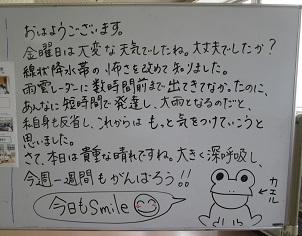 おはようございます。
金曜日は大変な天気でしたね。大丈夫でしたか？
線状降水帯の怖さを改めて知りました。
雨雲レーダーに数時間前まで出てきてなかったのに、
あんなに短時間で発達し、大雨となるのだと、
私自身も反省し、これからはもっと気をつけていこうと
思いました。
さて、本日は貴重な晴れですね。大きく深呼吸し、
今週一週間もがんばろう!!
今日もSmile
カエル